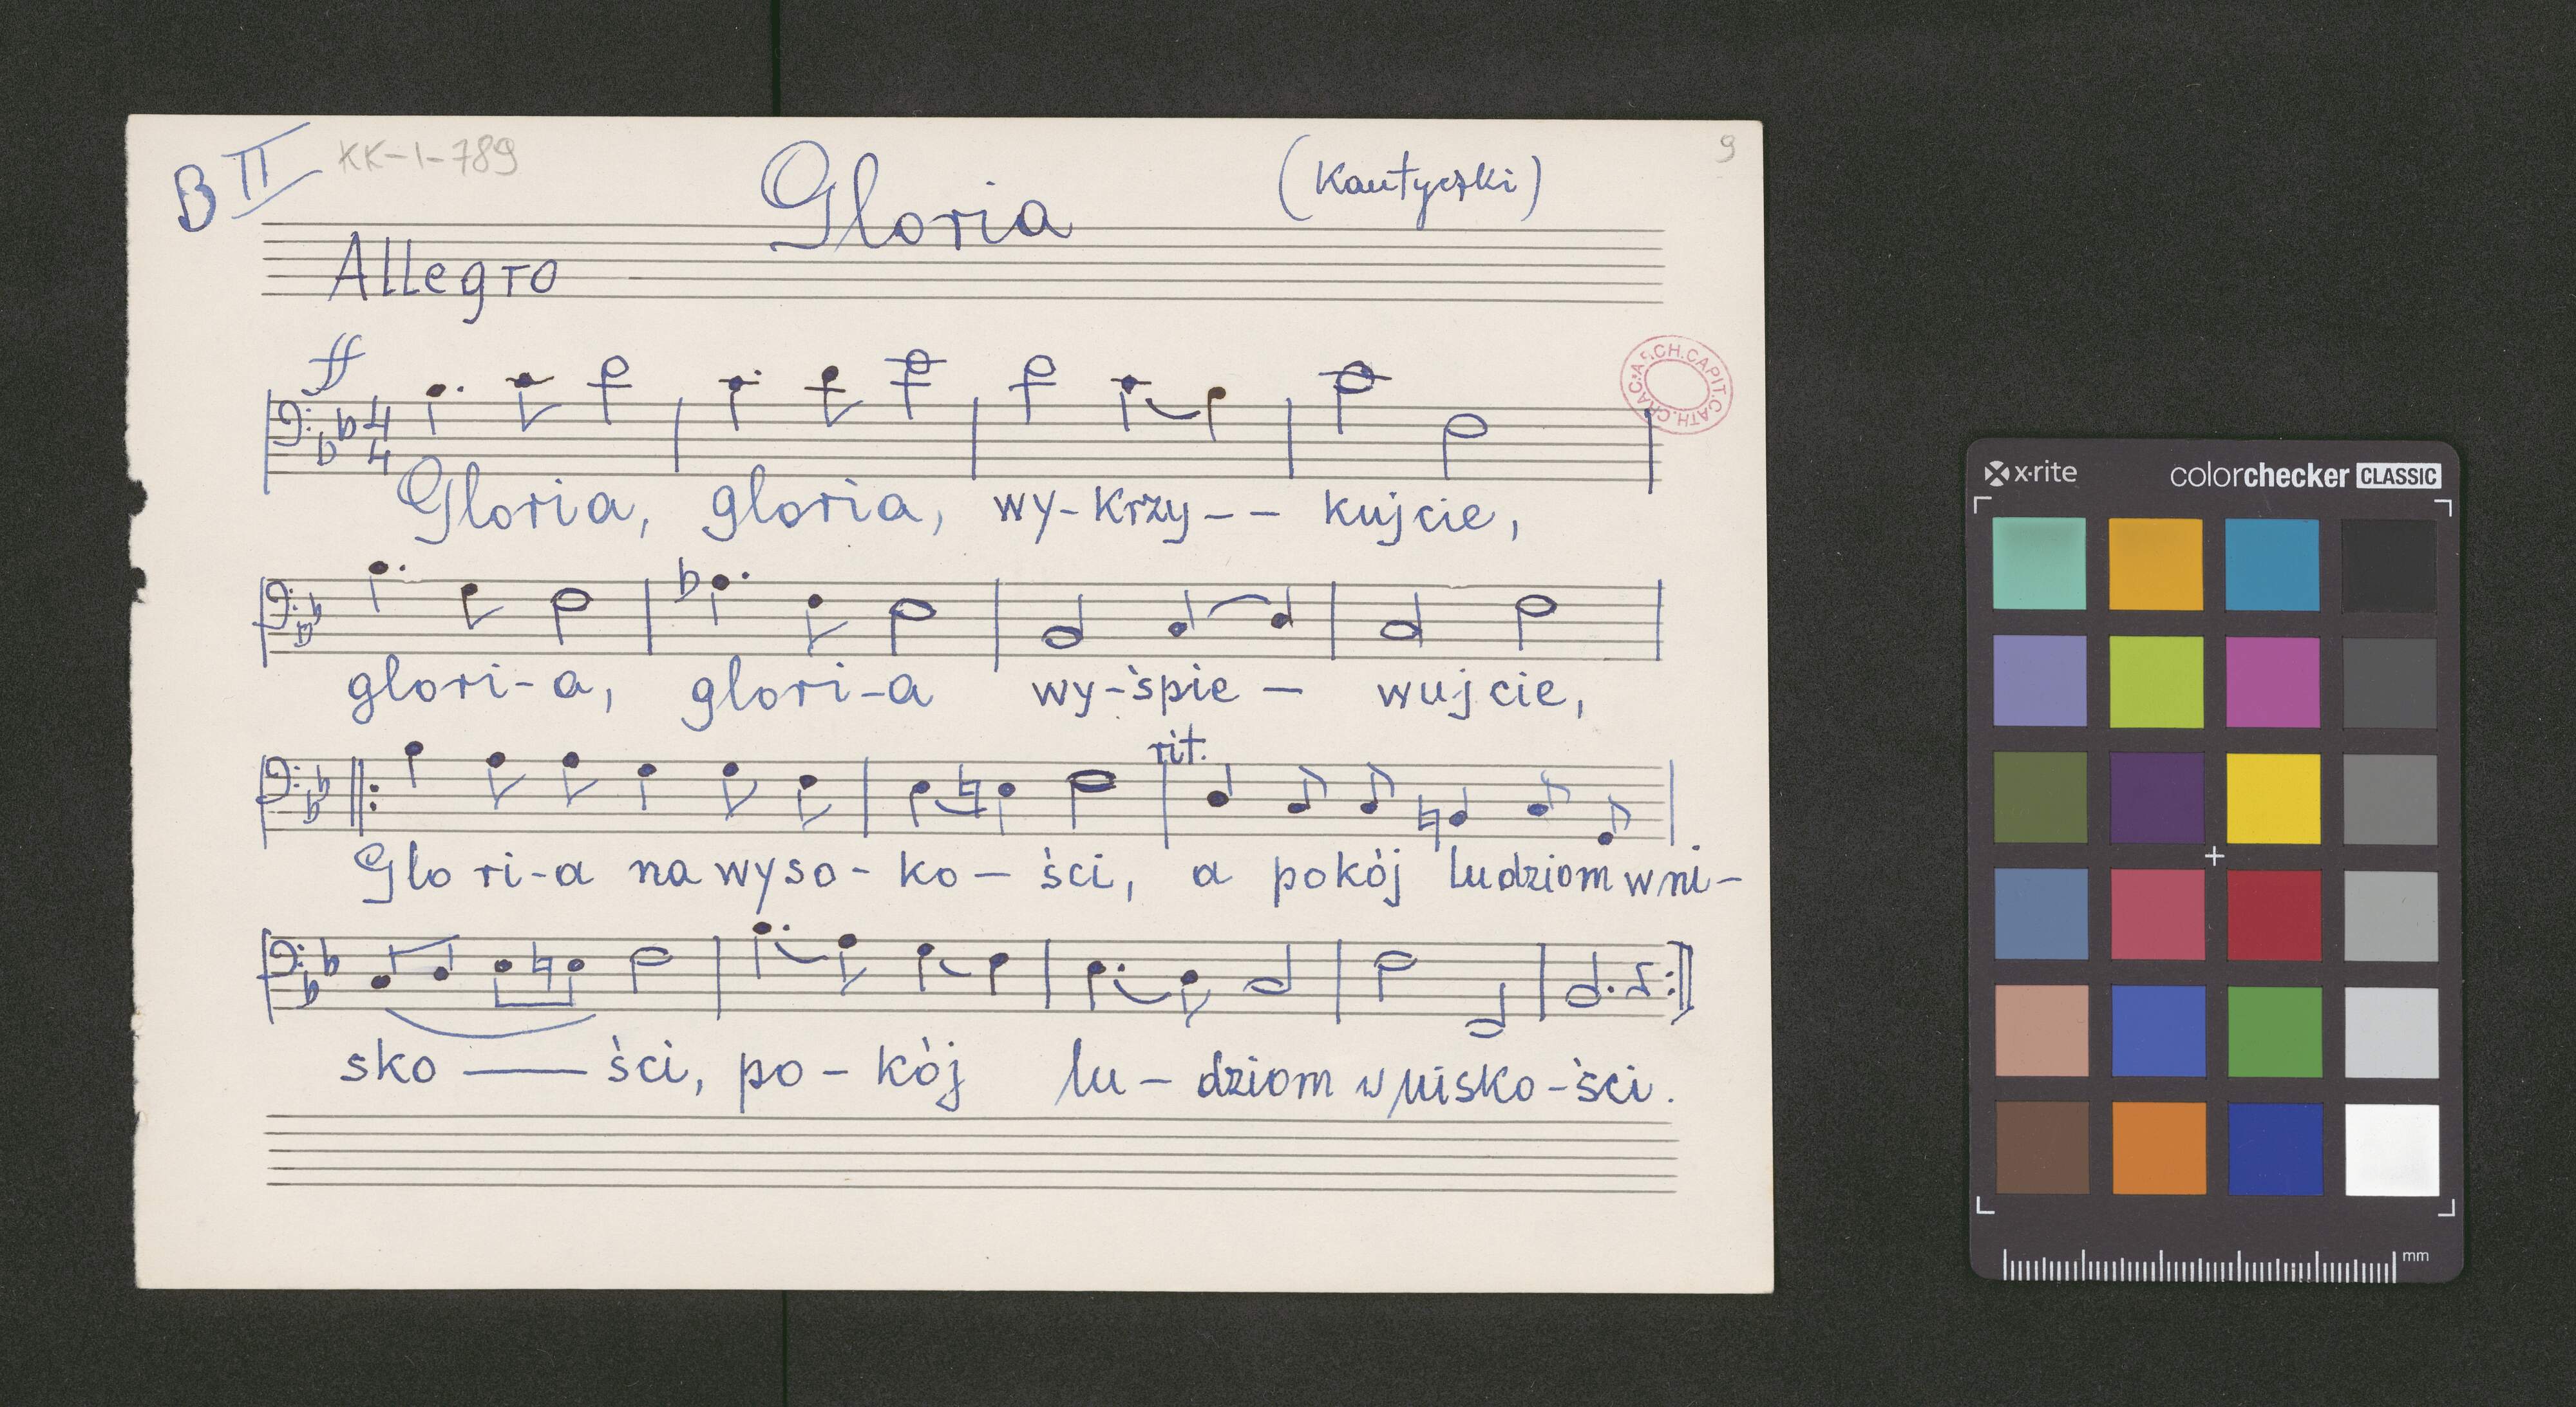 B II KK-I-789 Gloria (Kantyczki) 9
Allegro
ff
4
4
Gloria, gloria, wy-krzy-- kujcie,
ARCH. CAPIT. CATH. CRAC.
glori-a, glori-a wy-śpie - wujcie,
rit.
Glo ri-a na wyso-ko-ści, a pokój ludziom w ni-
sko — ści, po-kój lu-dziom w nisko-ści.
x-rite colorchecker CLASSIC
mm